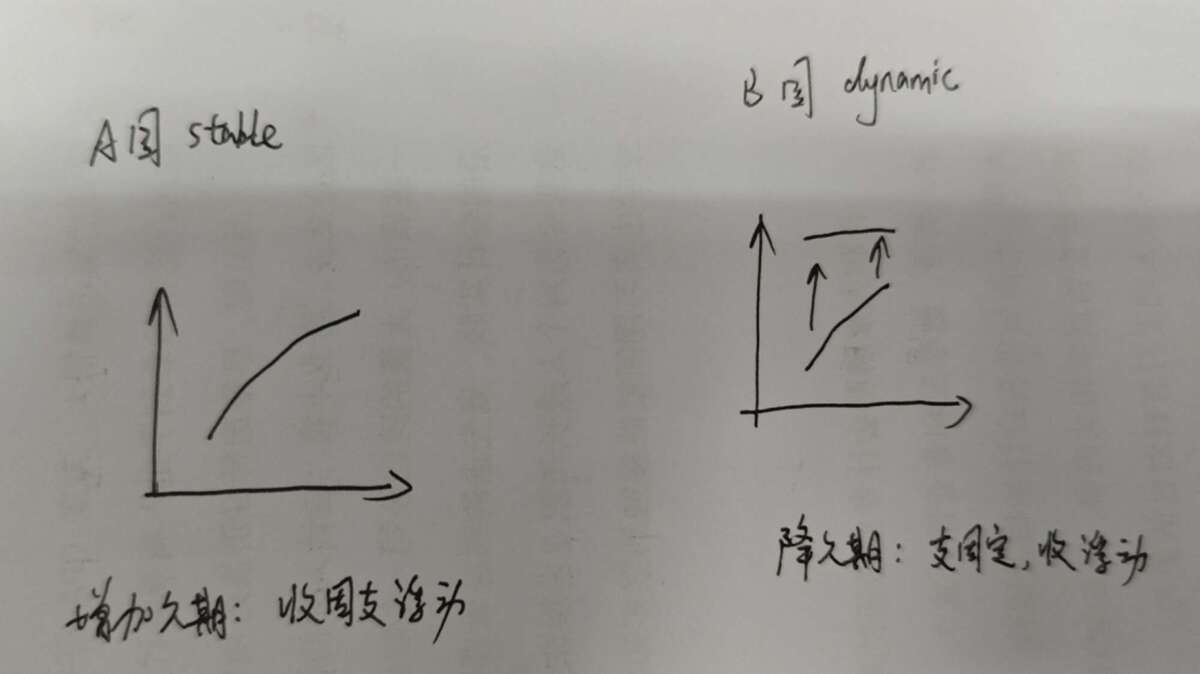 A图 stable
B图 dynamic
增加久期：收固支浮动
降久期：支固定，收浮动